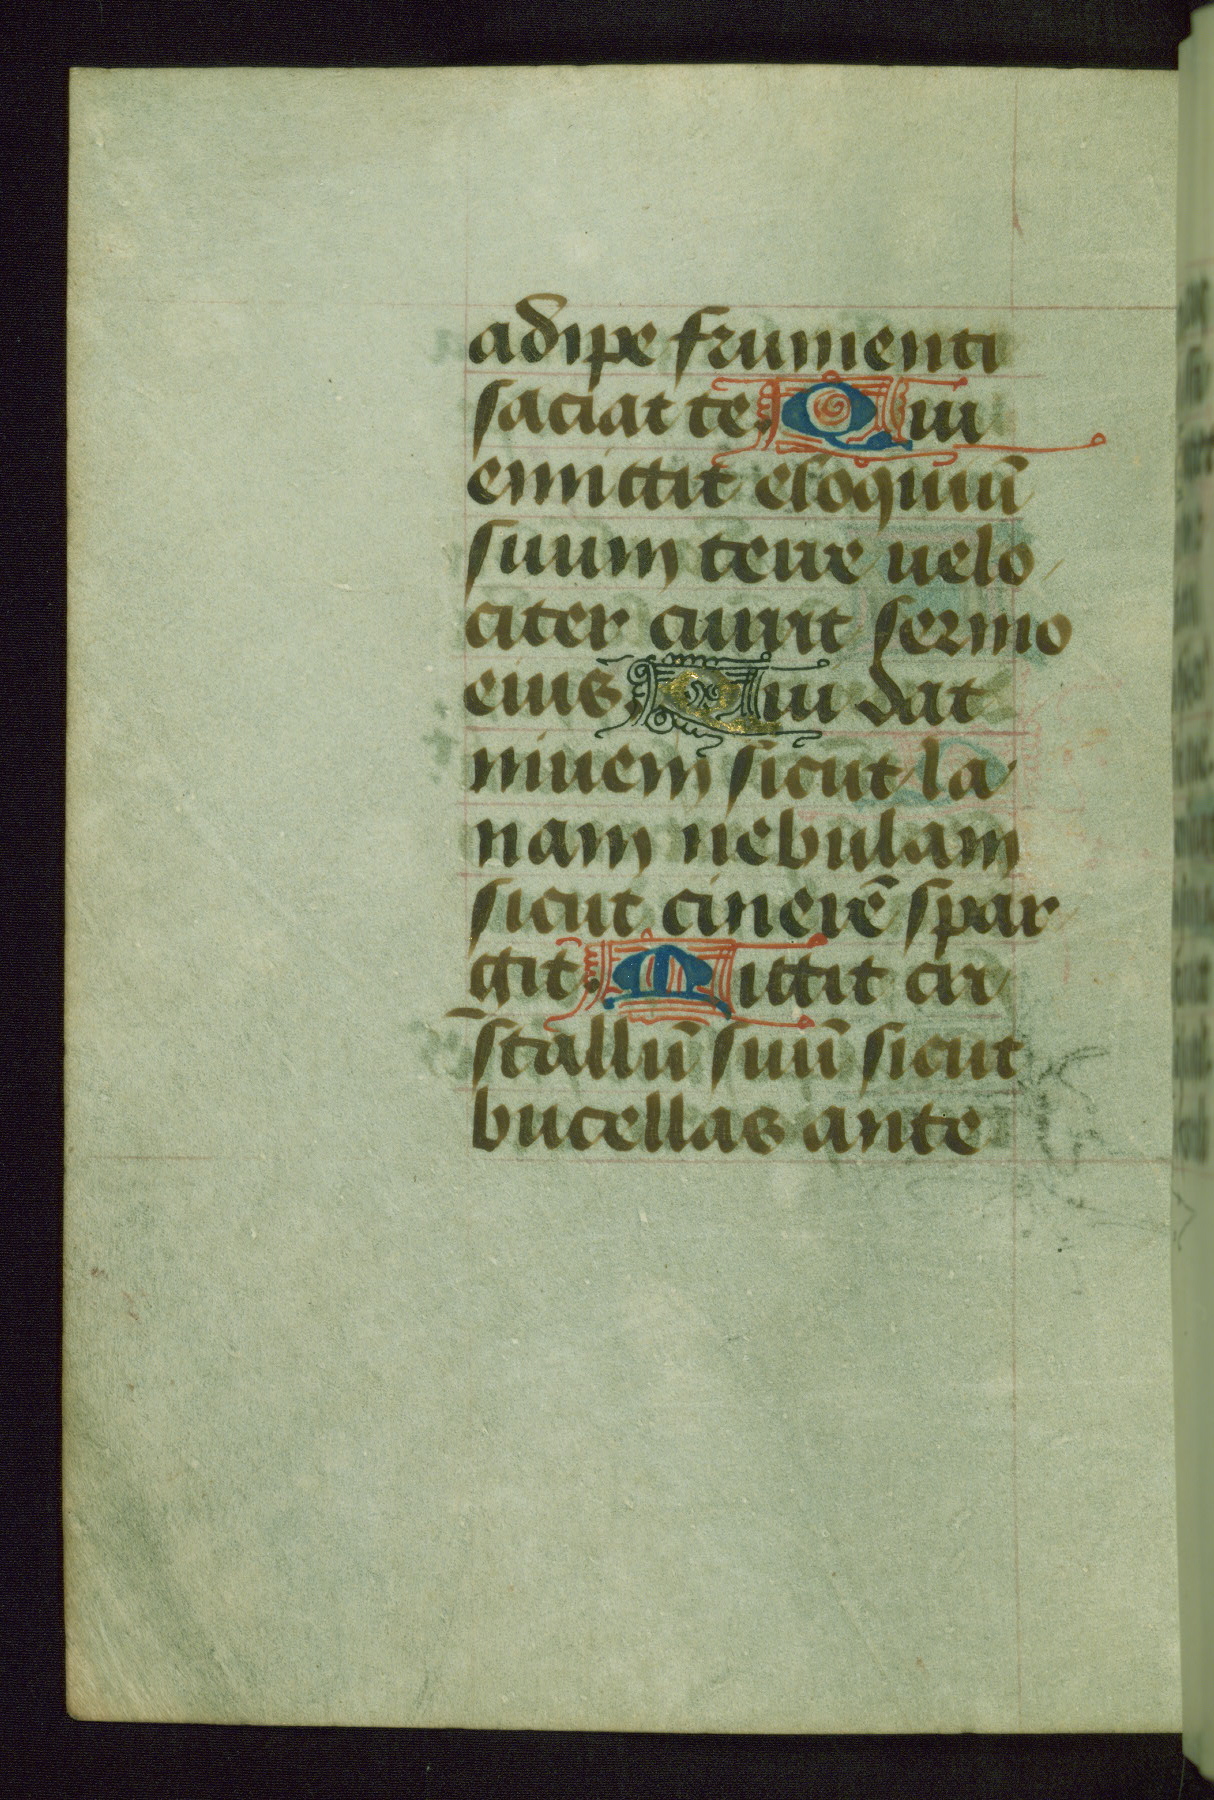 adipe frumenti
saciat te. Qui
emittit eloquiū
suum terre uelo
citer currit sermo
eius. Qui dat
niuem sicut la
nam nebulam
sicut cinerē spar
git. Mittit cri
stallū suū sicut
bucellas ante